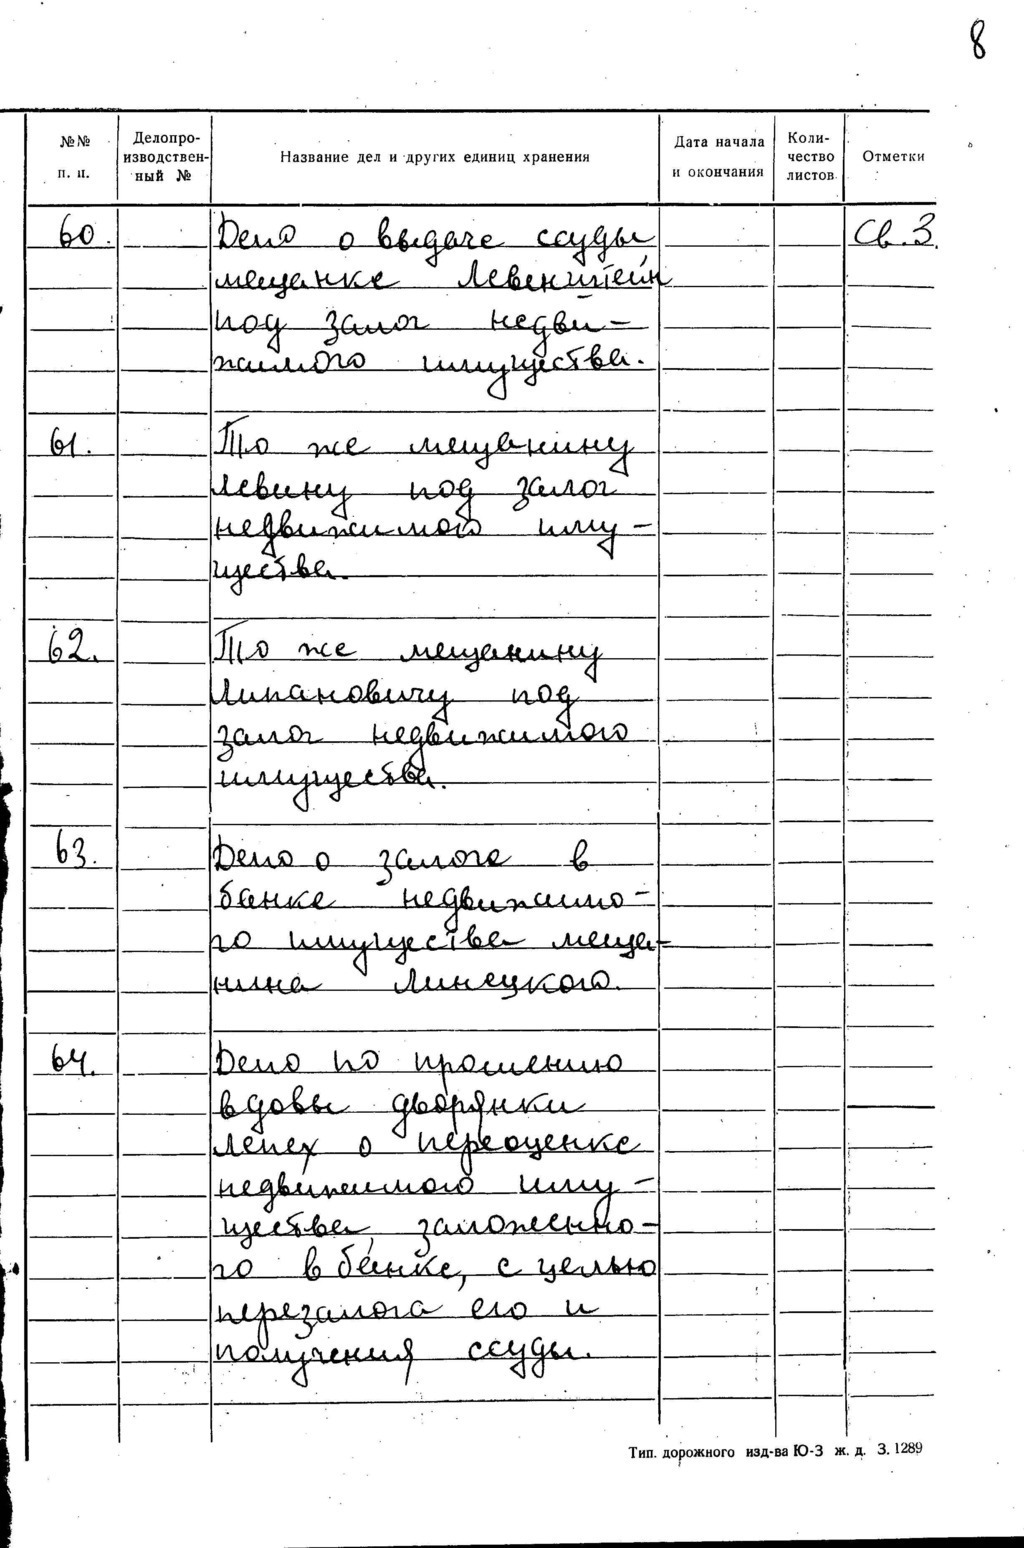 8
№№ п. п.
Делопро-
изводствен-
ный №
Название дел и других единиц хранения
Дата начала
и окончания
Коли-
чество
листов
Отметки
60. Дело о выдаче ссуды Св. 3.
мещанке Левенштейн
под залог недви-
жимого имущества.
61. То же мещанину
Левину под залог
недвижимого иму-
щества.
62. То же мещанину
Липановичу под
залог недвижимого
имущества.
63. Дело о залоге в
банке недвижимо-
го имущества меща-
нина Линецкого.
64. Дело по прошению
вдовы дворянки
Лепех о переоценке
недвижимого иму-
щества, заложенно-
го в банке, с целью
перезалога его и
получения ссуды.
Тип. дорожного изд-ва Ю-З ж. д. З. 1289